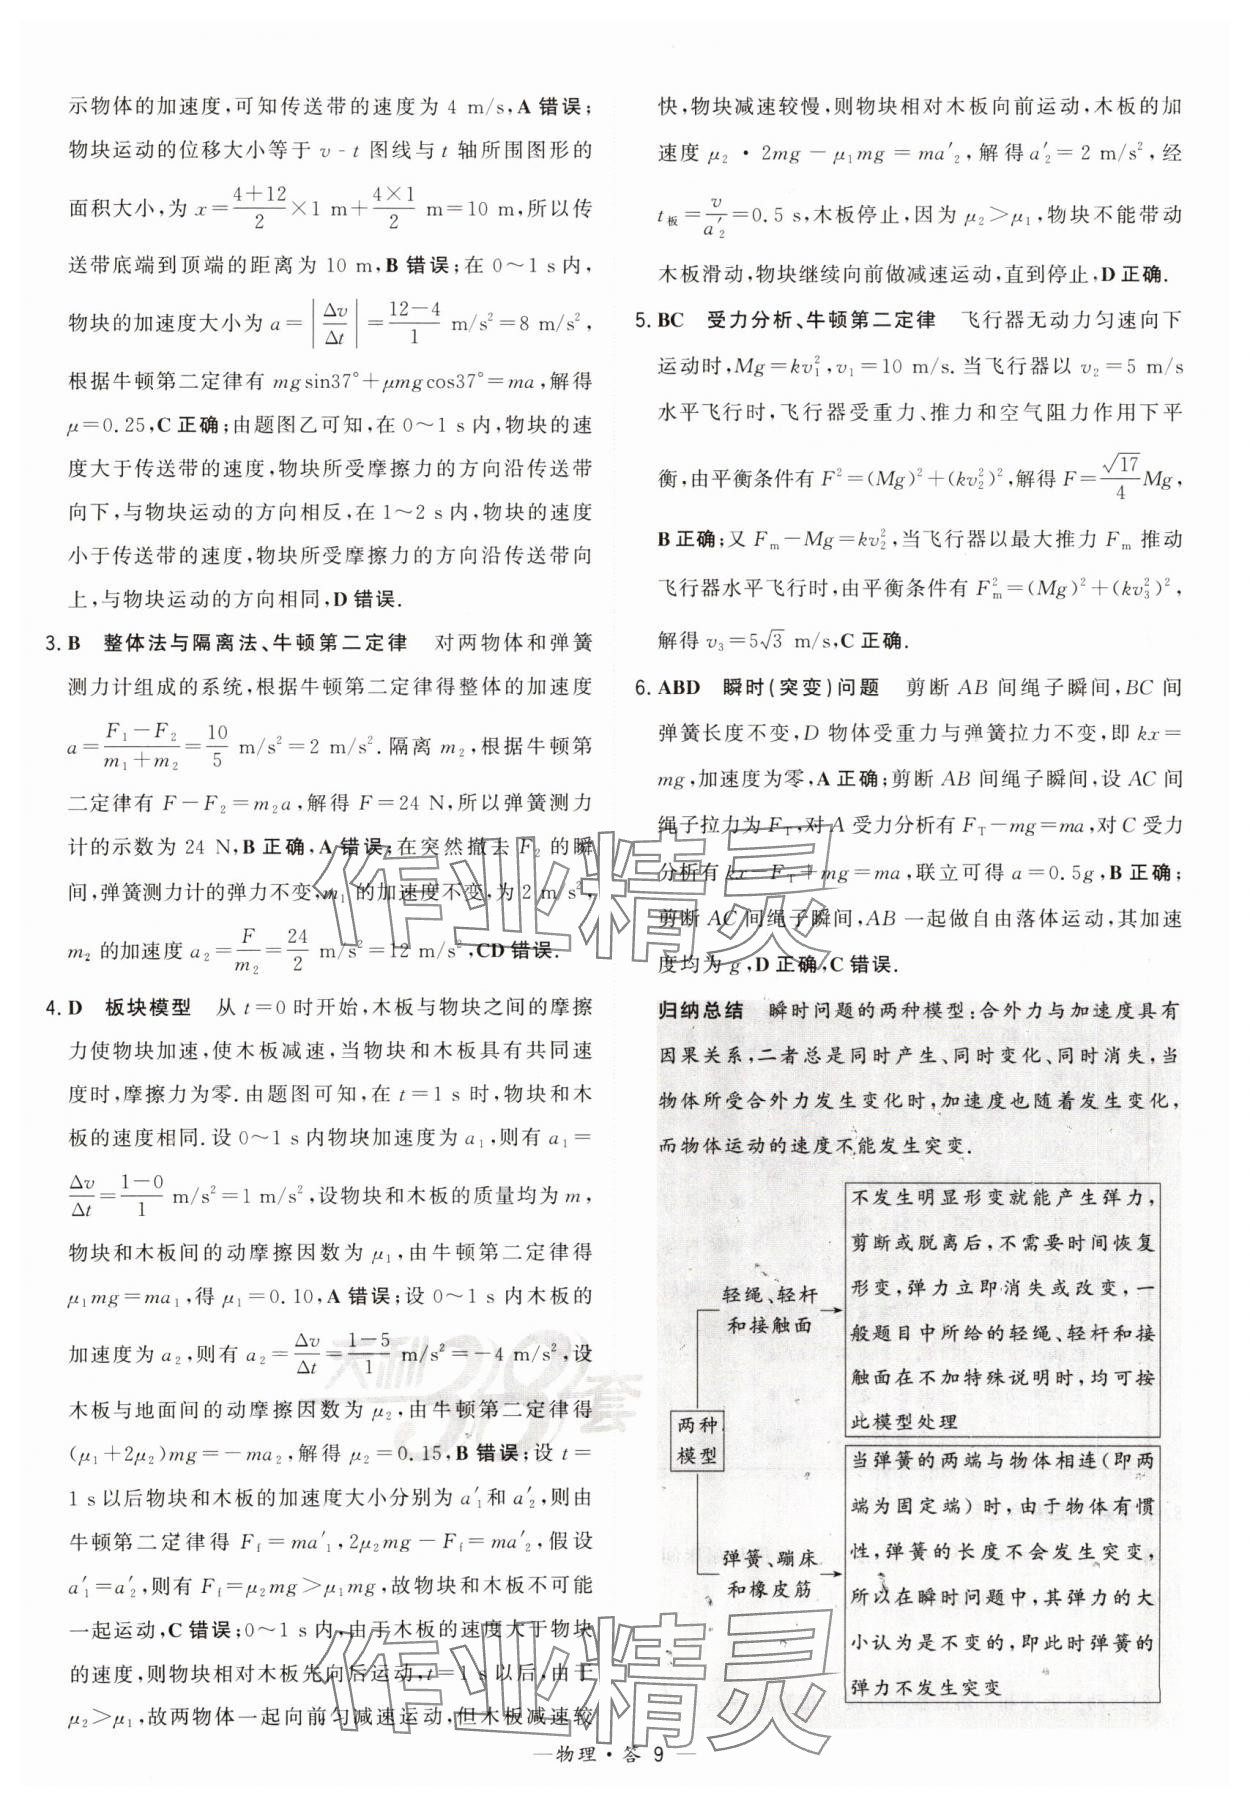 示物体的加速度,可知传送带的速度为 4 m/s,A 错误;
物块运动的位移大小等于 v - t 图线与 t 轴所围图形的
面积大小,为 x=\frac{4+12}{2}×1 m+\frac{4×1}{2} m=10 m,所以传
送带底端到顶端的距离为 10 m,B 错误;在 0~1 s 内,
物块的加速度大小为 a=|\frac{Δv}{Δt}|=\frac{12-4}{1} m/s²=8 m/s²,
根据牛顿第二定律有 mgsin37°+μmgcos37°=ma,解得
μ=0.25,C 正确;由题图乙可知,在 0~1 s 内,物块的速
度大于传送带的速度,物块所受摩擦力的方向沿传送带
向下,与物块运动的方向相反,在 1~2 s 内,物块的速度
小于传送带的速度,物块所受摩擦力的方向沿传送带向
上,与物块运动的方向相同,D 错误.
3. B 整体法与隔离法、牛顿第二定律 对两物体和弹簧
测力计组成的系统,根据牛顿第二定律得整体的加速度
a=\frac{F₁-F₂}{m₁+m₂}=\frac{10}{5} m/s²=2 m/s².隔离 m₂,根据牛顿第
二定律有 F-F₂=m₂a,解得 F=24 N,所以弹簧测力
计的示数为 24 N,B 正确,A 错误;在突然撤去 F₂ 的瞬
间,弹簧测力计的弹力不变,m₁ 的加速度不变,为 2 m/s²,
m₂ 的加速度 a₂=\frac{F}{m₂}=\frac{24}{2} m/s²=12 m/s²,CD 错误.
4. D 板块模型 从 t=0 时开始,木板与物块之间的摩擦
力使物块加速,使木板减速,当物块和木板具有共同速
度时,摩擦力为零.由题图可知,在 t=1 s 时,物块和木
板的速度相同.设 0~1 s 内物块加速度为 a₁,则有 a₁=
\frac{Δv}{Δt}=\frac{1-0}{1} m/s²=1 m/s²,设物块和木板的质量均为 m,
物块和木板间的动摩擦因数为 μ₁,由牛顿第二定律得
μ₁mg=ma₁,得 μ₁=0.10,A 错误;设 0~1 s 内木板的
加速度为 a₂,则有 a₂=\frac{Δv}{Δt}=\frac{1-5}{1} m/s²=-4 m/s²,设
木板与地面间的动摩擦因数为 μ₂,由牛顿第二定律得
(μ₁+2μ₂)mg=-ma₂,解得 μ₂=0.15,B 错误;设 t=
1 s 以后物块和木板的加速度大小分别为 a′₁和 a′₂,则由
牛顿第二定律得 F_f=ma′₁,2μ₂mg-F_f=ma′₂,假设
a′₁=a′₂,则有 F_f=μ₂mg>μ₁mg,故物块和木板不可能
一起运动,C 错误;0~1 s 内,由于木板的速度大于物块
的速度,则物块相对木板先向后运动,t=1 s 以后,由于
μ₂>μ₁,故两物体一起向前匀减速运动,但木板减速较
快,物块减速较慢,则物块相对木板向前运动,木板的加
速度 μ₂·2mg-μ₁mg=ma′₂,解得 a′₂=2 m/s²,经
t板=\frac{v}{a′₂}=0.5 s,木板停止,因为 μ₂>μ₁,物块不能带动
木板滑动,物块继续向前做减速运动,直到停止,D 正确.
5. BC 受力分析、牛顿第二定律 飞行器无动力匀速向下
运动时,Mg=kv₁²,v₁=10 m/s.当飞行器以 v₂=5 m/s
水平飞行时,飞行器受重力、推力和空气阻力作用下平
衡,由平衡条件有 F²=(Mg)²+(kv₂²)²,解得 F=\frac{\sqrt{17}}{4}Mg,
B 正确;又 Fₘ-Mg=kv₂²,当飞行器以最大推力 Fₘ 推动
飞行器水平飞行时,由平衡条件有 Fₘ²=(Mg)²+(kv₃²)²,
解得 v₃=5√3 m/s,C 正确.
6. ABD 瞬时(突变)问题 剪断 AB 间绳子瞬间,BC 间
弹簧长度不变,D 物体受重力与弹簧拉力不变,即 kx=
mg,加速度为零,A 正确;剪断 AB 间绳子瞬间,设 AC 间
绳子拉力为 F_T,对 A 受力分析有 F_T-mg=ma,对 C 受力
分析有 kx-F_T+mg=ma,联立可得 a=0.5g,B 正确;
剪断 AC 间绳子瞬间,AB 一起做自由落体运动,其加速
度均为 g,D 正确,C 错误.
归纳总结 瞬时问题的两种模型:合外力与加速度具有
因果关系,二者总是同时产生、同时变化、同时消失,当
物体所受合外力发生变化时,加速度也随着发生变化,
而物体运动的速度不能发生突变.
两种
模型
轻绳、轻杆
和接触面
不发生明显形变就能产生弹力,
剪断或脱离后,不需要时间恢复
形变,弹力立即消失或改变,一
般题目中所给的轻绳、轻杆和接
触面在不加特殊说明时,均可按
此模型处理
弹簧、蹦床
和橡皮筋
当弹簧的两端与物体相连(即两
端为固定端)时,由于物体有惯
性,弹簧的长度不会发生突变,
所以在瞬时问题中,其弹力的大
小认为是不变的,即此时弹簧的
弹力不发生突变
作业精灵
天利38套
作业精灵
—物理·答 9 —